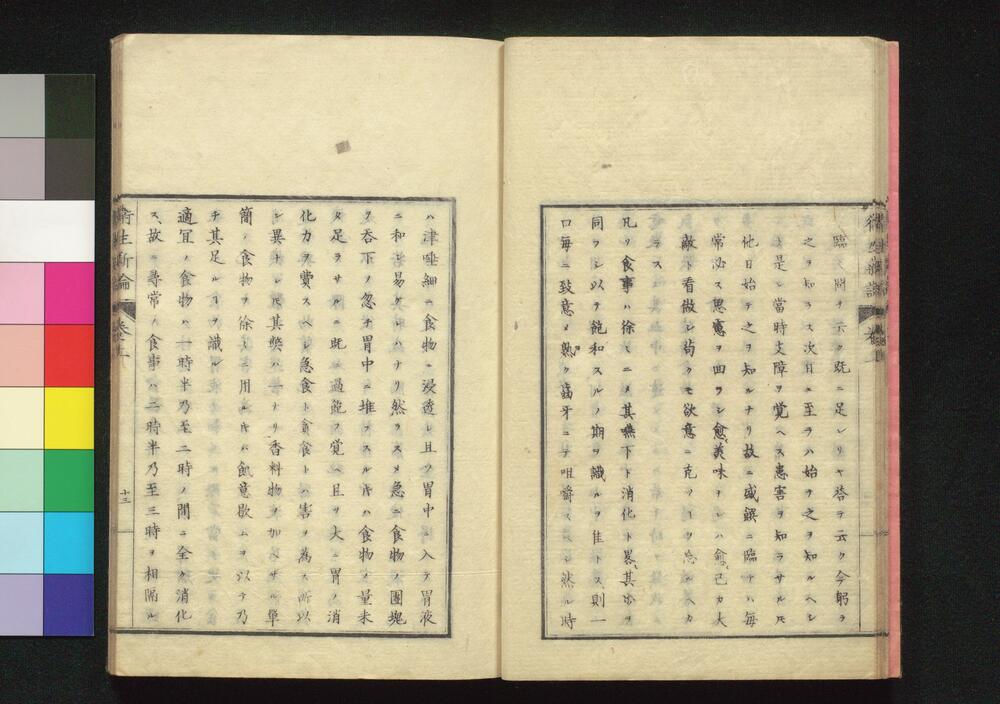 臨 問テ云ク既ニ足レリヤ答テ云ク今躬ヲ
之ヲ知ラス次日ニ至ラハ始テ之ヲ知ルヘシ
ト是レ當時支障ヲ覺ヘス患害ヲ知ラサル𪜈
他日始テ之ヲ知ルナリ故ニ盛饌ニ臨テハ毎
常必ス思慮ヲ回ラシ愈美味ナレハ愈己カ大
敵ト看做シ苟クモ欲意ニ克ツヿヲ忘ルヘカ
ラス
凡ソ食事ハ徐々ニメ其嚥下ト消化ト畧其歩ヲ
同フシ以テ飽和スルノ期ヲ識ルヲ佳トス則一
口毎ニ致意メ熟ク齒牙ニテ咀嚼スヘシ然ル時
ハ津唾細ニ食物ニ浸透シ且ツ胃中ニ入テ胃液
ニ和シ易ケレハナリ然ラスメ急ニ食物ノ團塊
ヲ呑下メ忽チ胃中ニ堆ヲスル𪜈ハ食物ノ量未
タ足ラサルニ既ニ過飽ヲ覺ヘ且ツ大ニ胃ノ消
化力ヲ費スヘシ急食ト貪食トハ害ヲ為ス所以
ノ異ナレ𪜈其弊ハ一ナリ香料物ヲ加ヘサル單
簡ノ食物ヲ徐々ニ用ル𪜈ハ飢意歇ムヲ以テ乃
チ其足ルヿヲ識ル
適冝ノ食物ハ一時半乃至二時ノ間ニ全ク消化
ス、故ニ尋常ノ食事ハ二時半乃至三時ヲ相隔ル
衛生新論
卷
十三